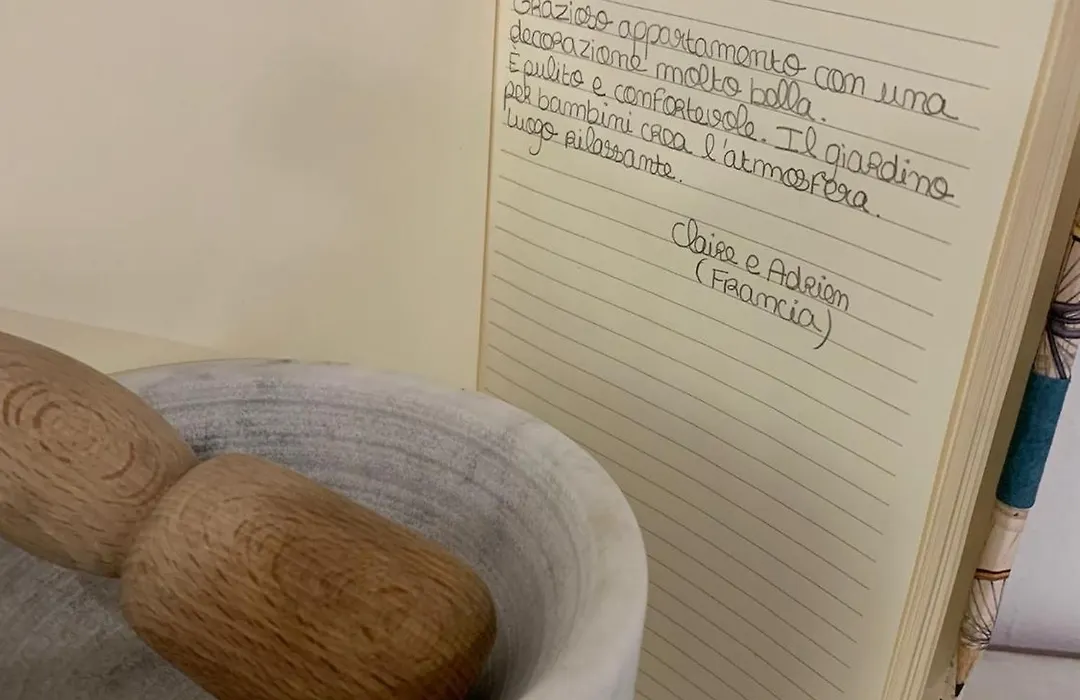 Grazioso appartamento con una
decorazione molto bella.
È pulito e confortevole. Il giardino
per bambini crea l'atmosfera.
Luogo rilassante.
Claire e Adrien
(Francia)